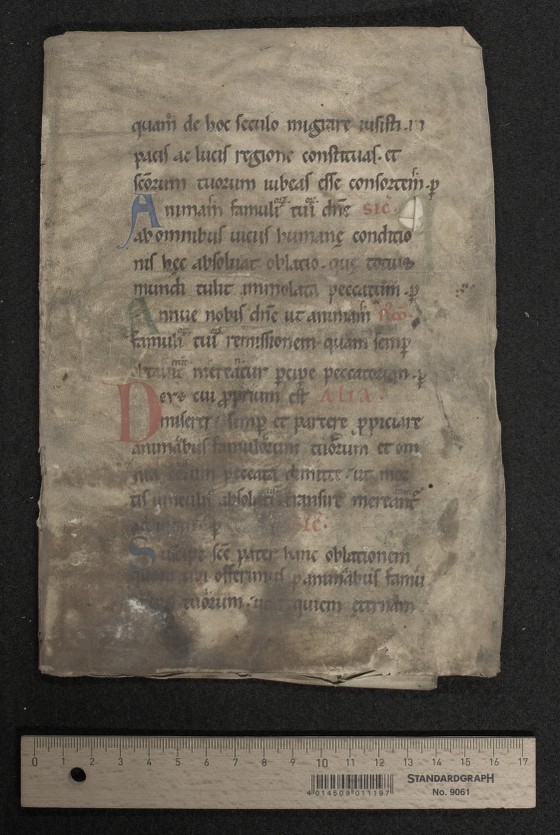 quam̄ de hoc seculo migrare iusisti. in
pacis ac lucis regione constituas. et
sc̄orum tuorum iubeas esse consortem̄. p
Animam famuli tui dn̄e sic̄.
ab omnibus uiciis humanę conditio
nis hęc absoluat oblatio. quę totius
mundi tulit immolata peccatum. p
Annue nobis dn̄e ut animam
famuli tui remissionem quam semp
mereatur pcipe peccatorum. p
Deus cui pprium est Alia.
misereri semp et parcere ppiciare
animabus famulorum tuorum et om
peccata dimitte. ut mor
tis uinculis absoluti transire mereant̄
sic̄.
Suscipe sc̄e pater hanc oblationem
offerimus p animabus famu
tuorum. requiem eternam
0 1 2 3 4 5 6 7 8 9 10 11 12 13 14 15 16 17
4 014509 011197
STANDARDGRAPH
No. 9061